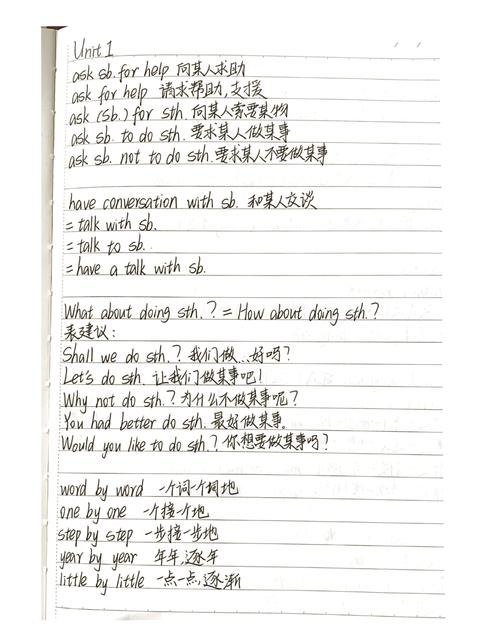 Unit 1
ask sb. for help 向某人求助
ask for help 请求帮助,支援
ask (sb.) for sth. 向某人索要某物
ask sb. to do sth. 要求某人做某事
ask sb. not to do sth. 要求某人不要做某事
have conversation with sb. 和某人交谈
= talk with sb.
= talk to sb.
= have a talk with sb.
What about doing sth.? = How about doing sth.?
表建议:
Shall we do sth.? 我们做...好吗?
Let's do sth. 让我们做某事吧!
Why not do sth.? 为什么不做某事呢?
You had better do sth. 最好做某事。
Would you like to do sth.? 你想要做某事吗?
word by word 一个词一个词地
one by one 一个接一个地
step by step 一步接一步地
year by year 年年,逐年
little by little 一点一点,逐渐